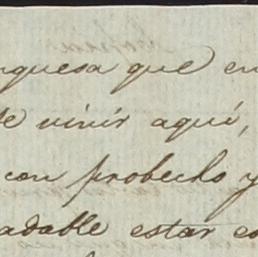 nquesa que en
de vivir aquí,
con probecho y
adable estar es